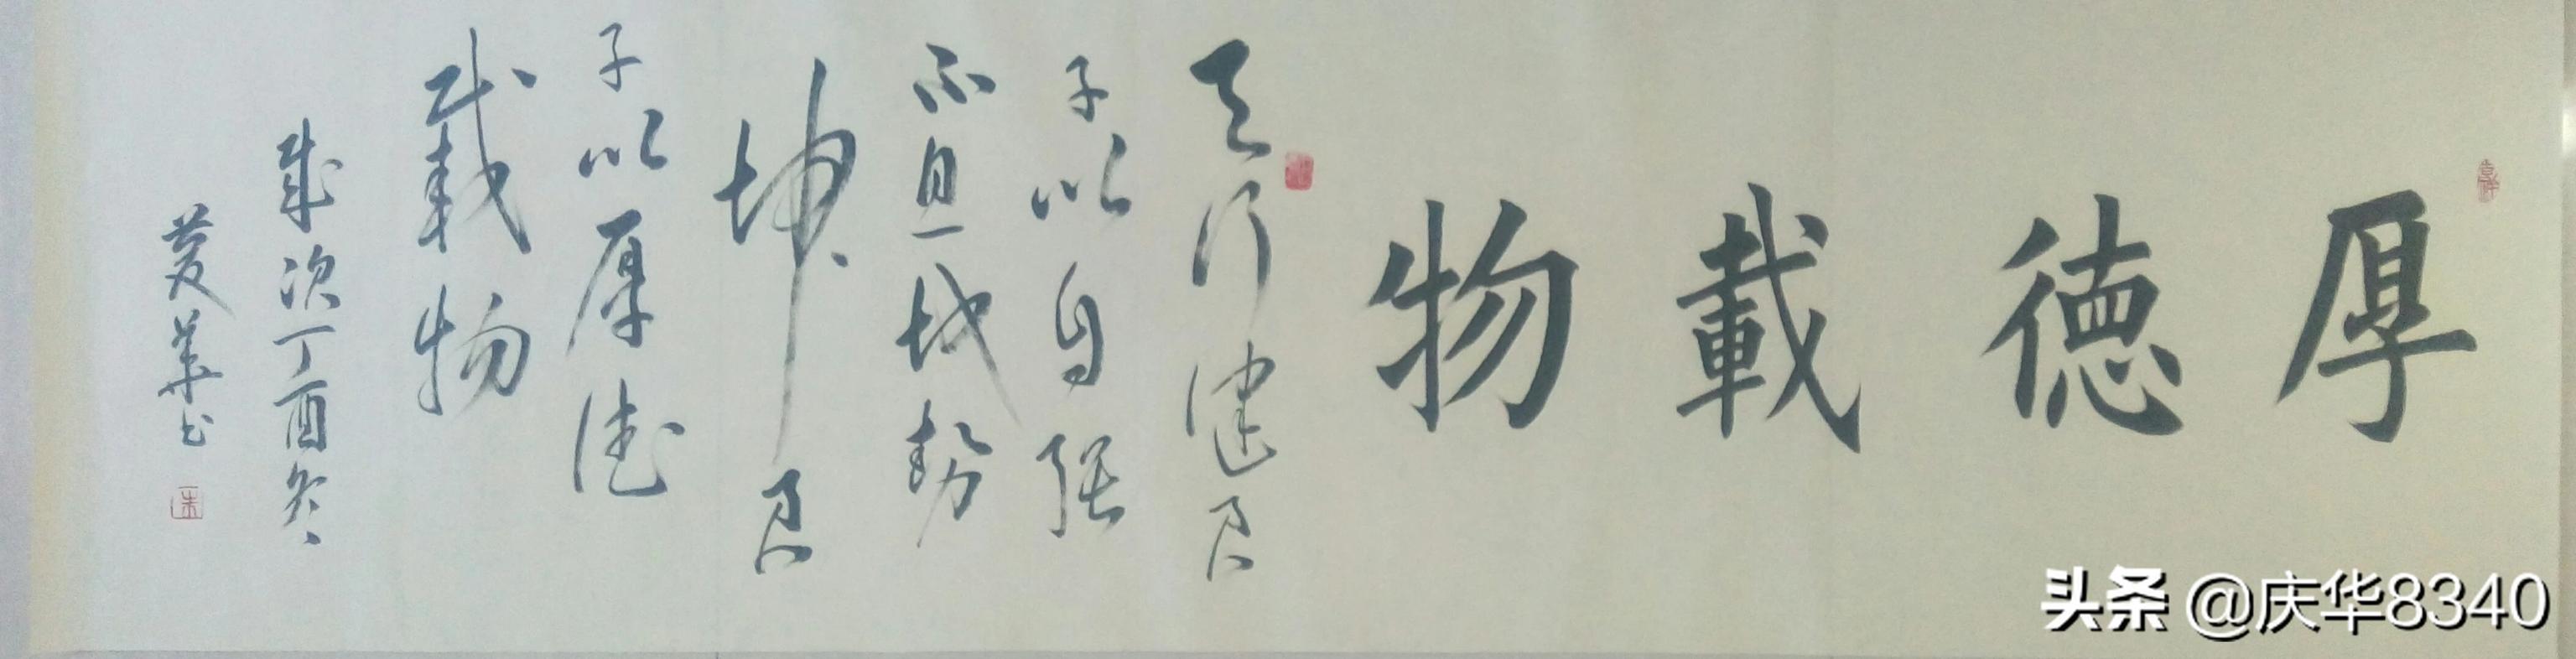 厚德載物
天行健君
子以自強
不息地勢
坤君
子以厚德
載物
歲次丁酉冬
慶華书
头条 @庆华8340